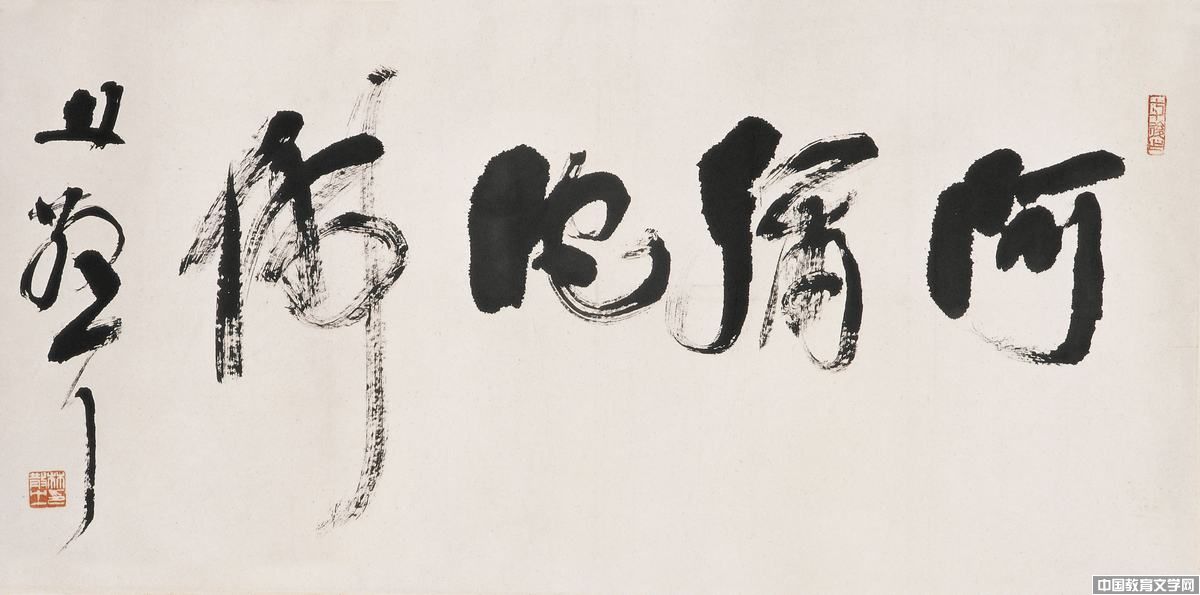 阿彌陀佛
林散之印
中国教育文学网